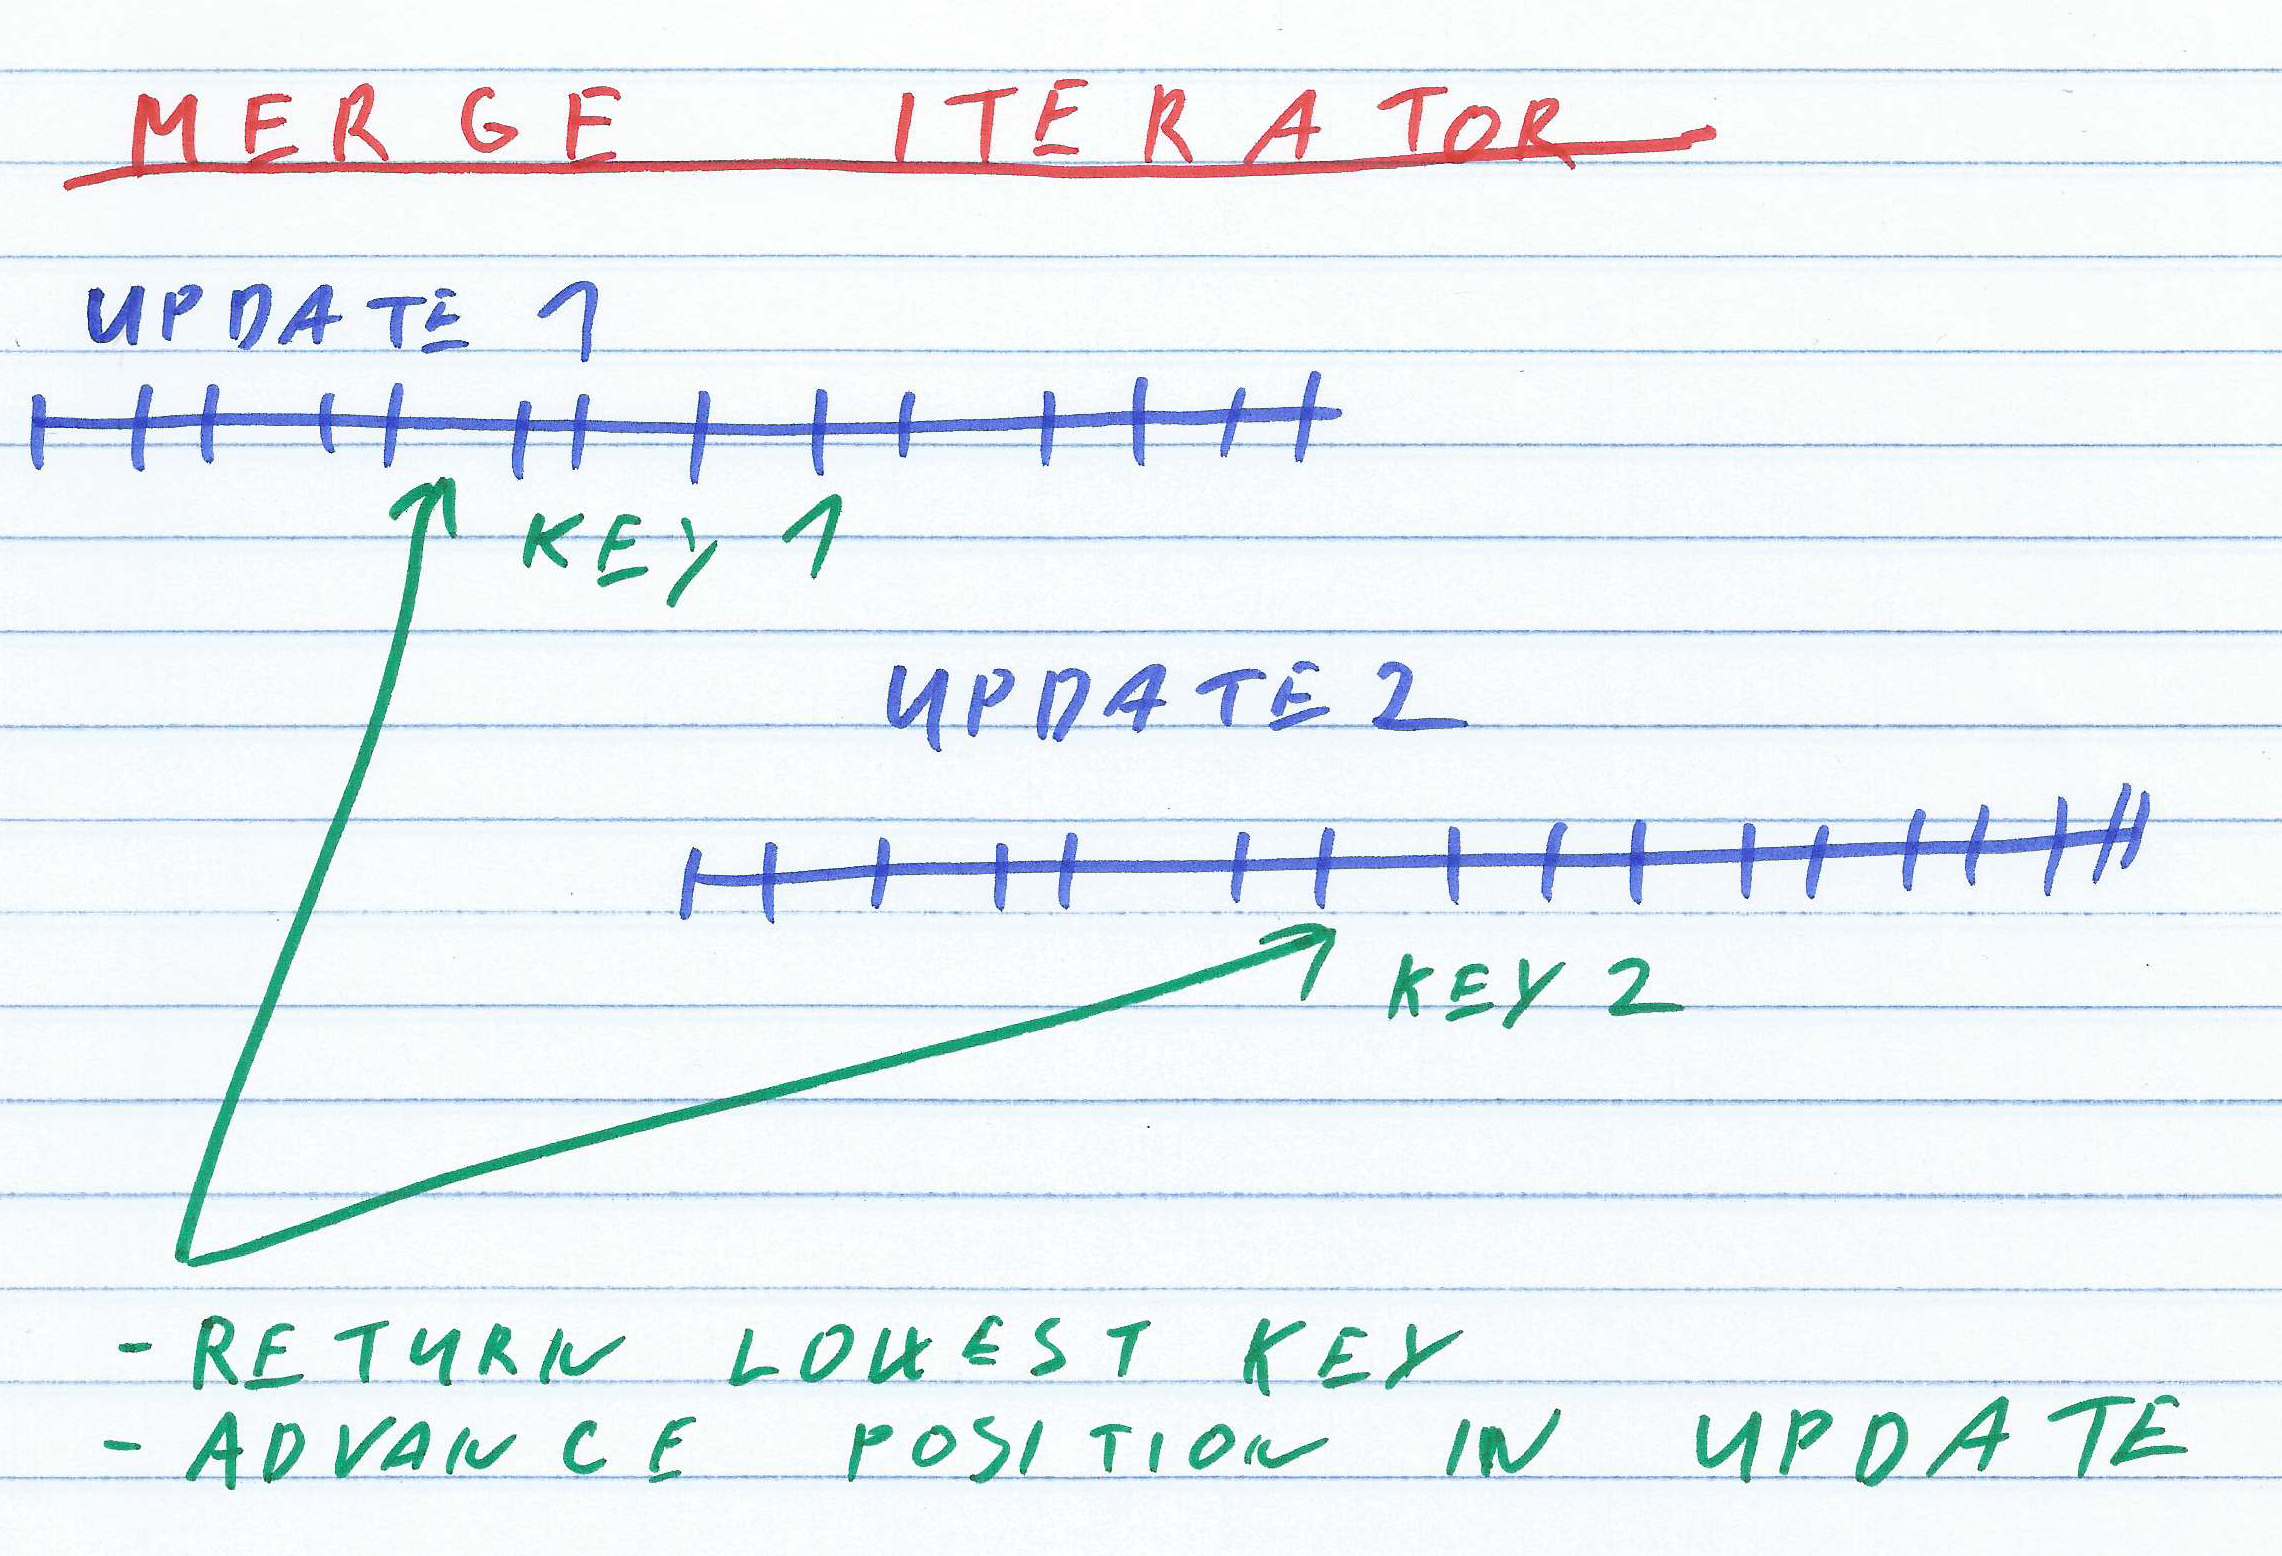 MERGE ITERATOR
UPDATE 1
KEY 1
UPDATE 2
KEY 2
- RETURN LOWEST KEY
- ADVANCE POSITION IN UPDATE